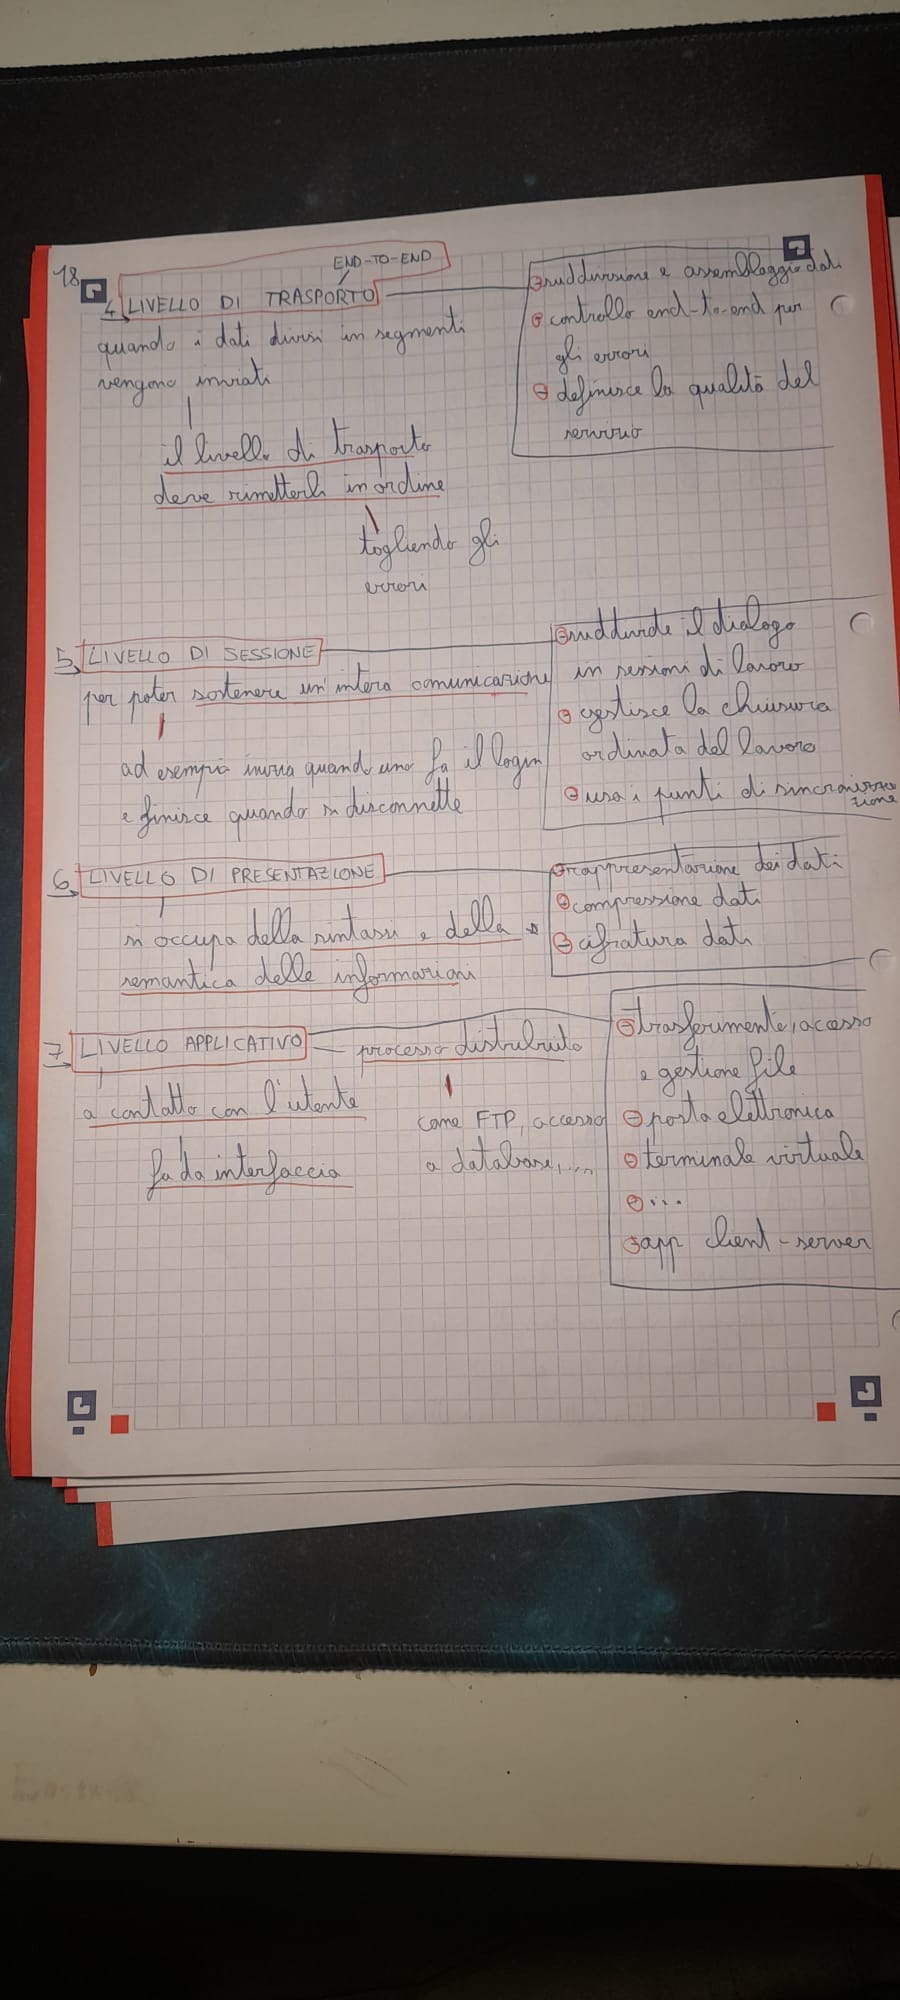 18
END-TO-END
4 LIVELLO DI TRASPORTO
quando i dati divisi in segmenti
vengono inviati
il livello di trasporto
deve rimetterli in ordine
togliendo gli
errori
suddivisione e assemblaggio dati
controllo end-to-end per
gli errori
definisce la qualità del
servizio
5 LIVELLO DI SESSIONE
per poter sostenere un'intera comunicazione
ad esempio inizia quando uno fa il login
e finisce quando si disconnette
suddivide il dialogo
in sessioni di lavoro
gestisce la chiusura
ordinata del lavoro
usa i punti di sincronizza
zione
6 LIVELLO DI PRESENTAZIONE
si occupa della sintassi e della
semantica delle informazioni
rappresentazione dei dati
compressione dati
cifratura dati
7 LIVELLO APPLICATIVO — processo distribuito
a contatto con l'utente
fa da interfaccia
come FTP, accesso
a database,...
trasferimento, accesso
e gestione file
posta elettronica
terminale virtuale
...
app client-server